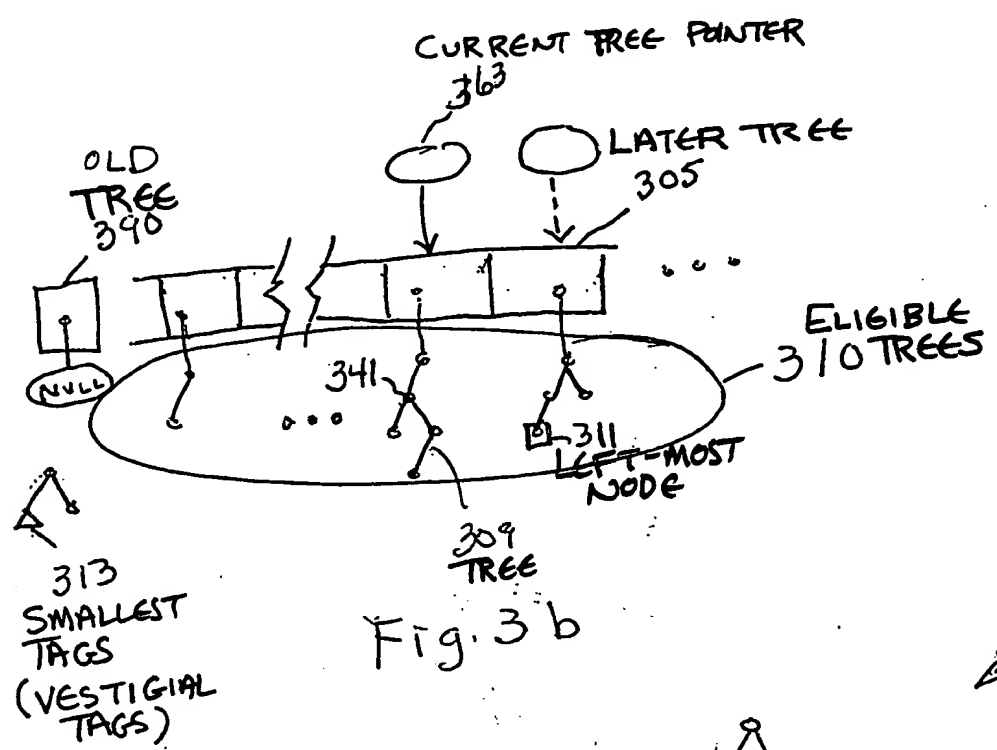 CURRENT TREE POINTER
363
LATER TREE
305
OLD
TREE
390
ELIGIBLE
310 TREES
NULL
341
311
LEFT-MOST
NODE
309
TREE
313
SMALLEST
TAGS
(VESTIGIAL
TAGS)
Fig. 3b